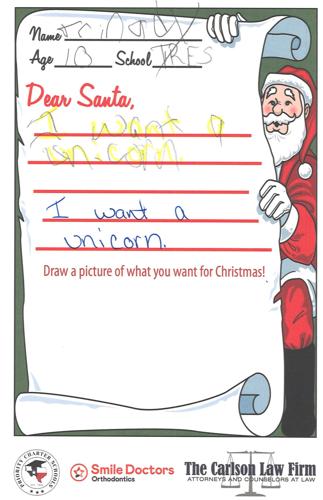 Name Trinady
Age 10 School TRES
Dear Santa,
I want a
unicorn.
I want a
unicorn.
Draw a picture of what you want for Christmas!
PRIORITY CHARTER SCHOOLS
Smile Doctors
Orthodontics
The Carlson Law Firm
ATTORNEYS AND COUNSELORS AT LAW